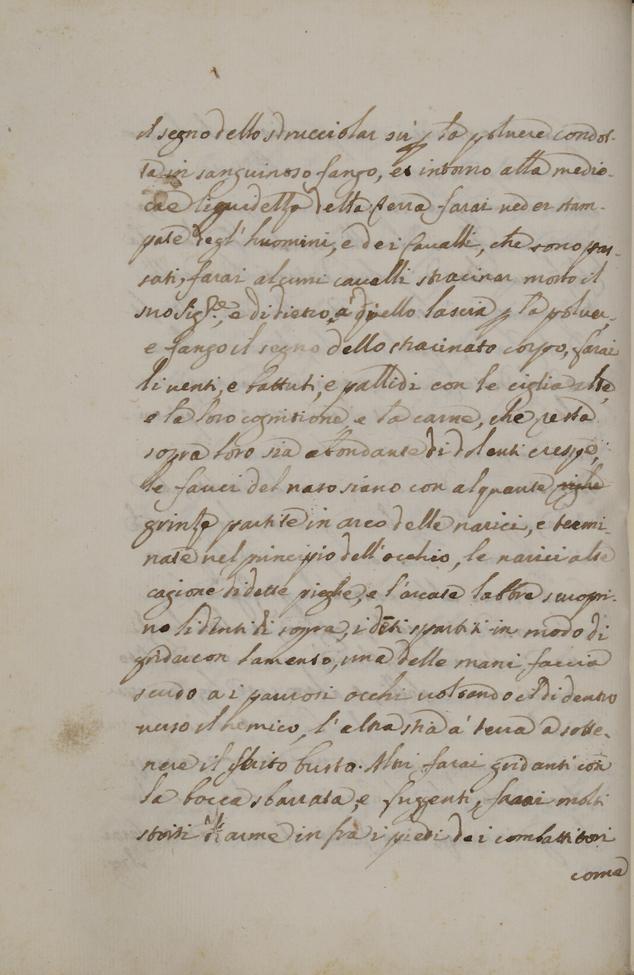 il segno dello sdrucciolar sù p la polvere condot-
ta in sanguinoso fango, et intorno alla medio-
cre liquidezza della terra farai veder stam-
pate degl'huomini, e dei cavalli, che sono pas-
sati, farai alcuni cavalli stracinar morto il
suo Sig.re, e di dietro à quello lascia p la polver,
e fango il segno dello stracinato corpo, farai
li venti, e battuti, e pallidi con le ciglia alte,
e la loro cognitione e la carne, che resta
sopra loro sia abondante di dolenti crespe,
le fauci del naso siano con alquante righe
grinze partite in arco delle narici, e termi-
nate nel principio dell'occhio, le narici alte
cagione di dette pieghe, e l'arcate labbre scuopri-
no li denti di sopra, i dẽti spartiti in modo di
gridar con lamento, una delle mani faccia
scudo a i paurosi occhi voltando el di dentro
verso il nemico, l'altra stia à terra a soste-
nere il ferito busto. Altri farai gridanti con
la bocca sbarrata, e fuggenti, farai molti
sorti d'arme in fra i piedi dei combattitori
come